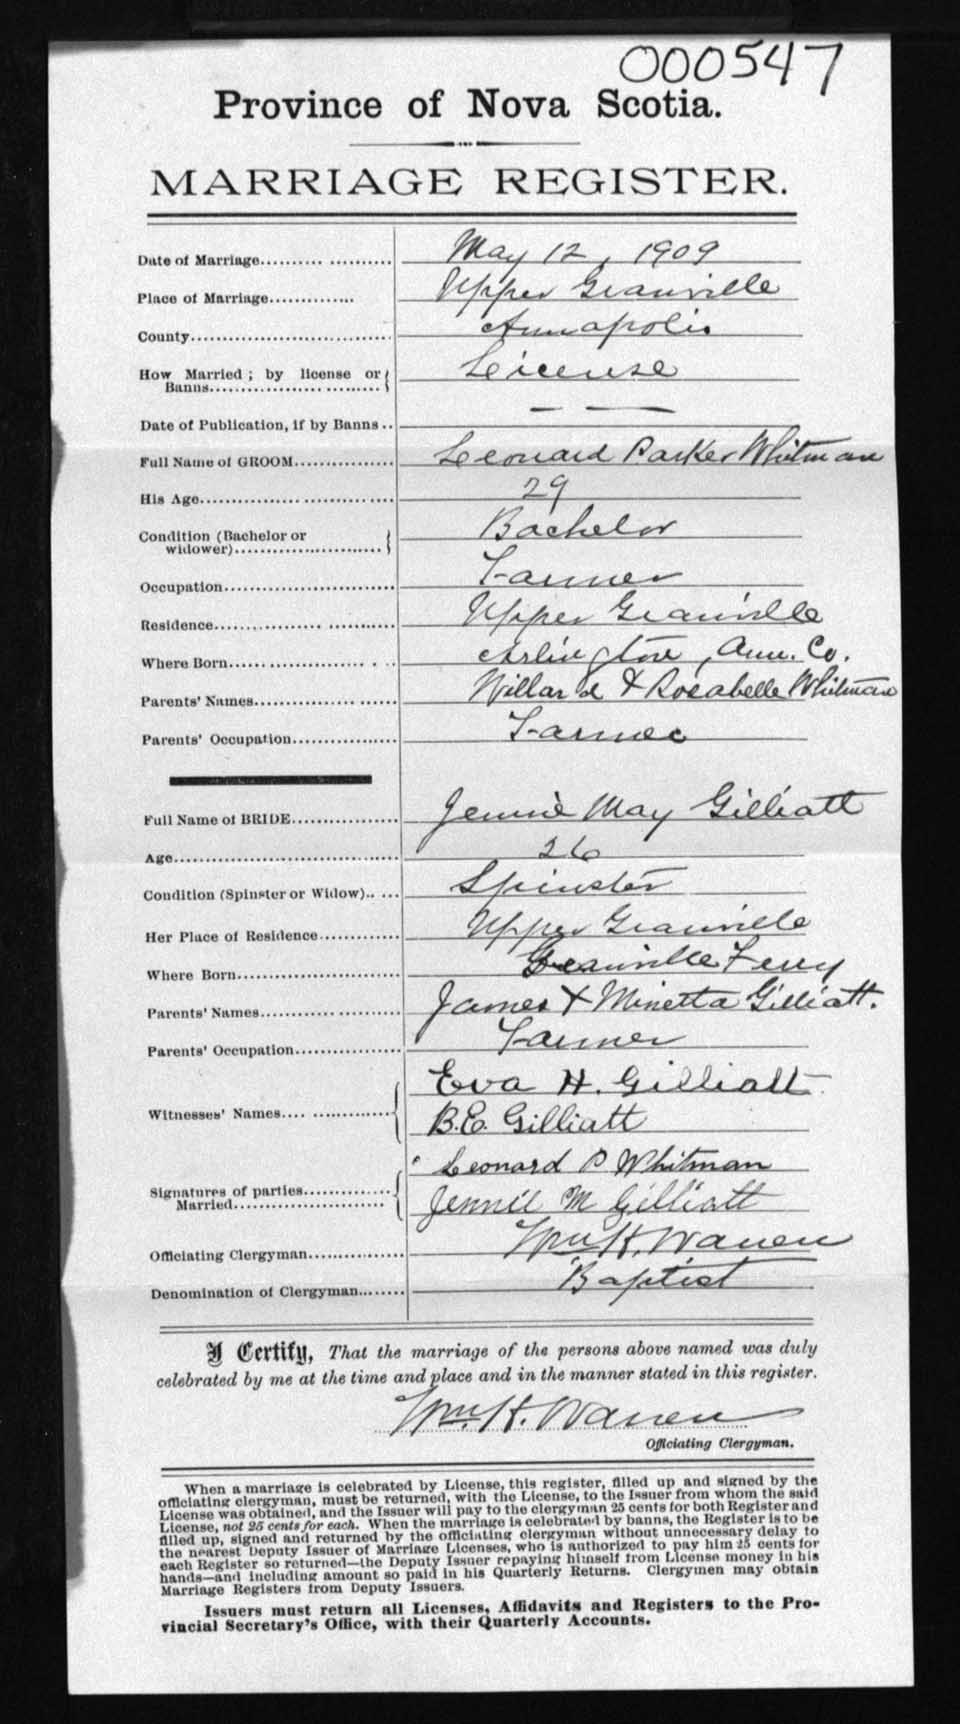 000547
Province of Nova Scotia.
MARRIAGE REGISTER.
Date of Marriage.......... .......... May 12, 1909
Place of Marriage.............. Upper Granville
County................................ Annapolis
How Married ; by license or
Banns.................... ......... License
Date of Publication, if by Banns .. — —
Full Name of GROOM................ Leonard Parker Whitman
His Age........................ .... 29
Condition (Bachelor or
widower)........................ Bachelor
Occupation........................... Farmer
Residence............... .......... Upper Granville
Where Born..................... . .. Arlington, Ann. Co.
Parents' Names................ ...... Willard & Rosabelle Whitman
Parents' Occupation................. Farmer
Full Name of BRIDE................. Jennie May Gilliatt
Age.................................... 26
Condition (Spinster or Widow).. .... Spinster
Her Place of Residence............. Upper Granville
Where Born......................... Granville Ferry
Parents' Names............... ....... James & Minetta Gilliatt.
Parents' Occupation................. Farmer
Eva H. Gilliatt
Witnesses' Names.... ..............
B.E. Gilliatt
Leonard P Whitman
Signatures of parties..............
Married........................ Jennie M Gilliatt
Officiating Clergyman............... Wm. H. Warren
Denomination of Clergyman........ Baptist
I Certify, That the marriage of the persons above named was duly
celebrated by me at the time and place and in the manner stated in this register.
Wm. H. Warren
Officiating Clergyman.
When a marriage is celebrated by License, this register, filled up and signed by the
officiating clergyman, must be returned, with the License, to the Issuer from whom the said
License was obtained, and the Issuer will pay to the clergyman 25 cents for both Register and
License, not 25 cents for each. When the marriage is celebrated by banns, the Register is to be
filled up, signed and returned by the officiating clergyman without unnecessary delay to
the nearest Deputy Issuer of Marriage Licenses, who is authorized to pay him 25 cents for
each Register so returned—the Deputy Issuer repaying himself from License money in his
hands—and including amount so paid in his Quarterly Returns. Clergymen may obtain
Marriage Registers from Deputy Issuers.
Issuers must return all Licenses, Affidavits and Registers to the Pro-
vincial Secretary's Office, with their Quarterly Accounts.